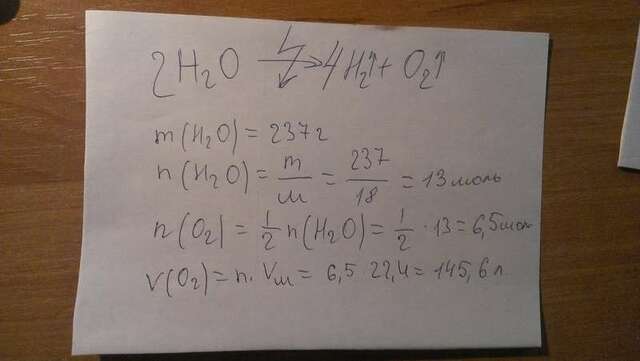 2H₂O → 4H₂↑ + O₂↑
m(H₂O) = 237г
n(H₂O) = m/M = 237/18 = 13 моль
n(O₂) = 1/2 n(H₂O) = 1/2 · 13 = 6,5 мол
V(O₂) = n · Vм = 6,5 22,4 = 145,6 л